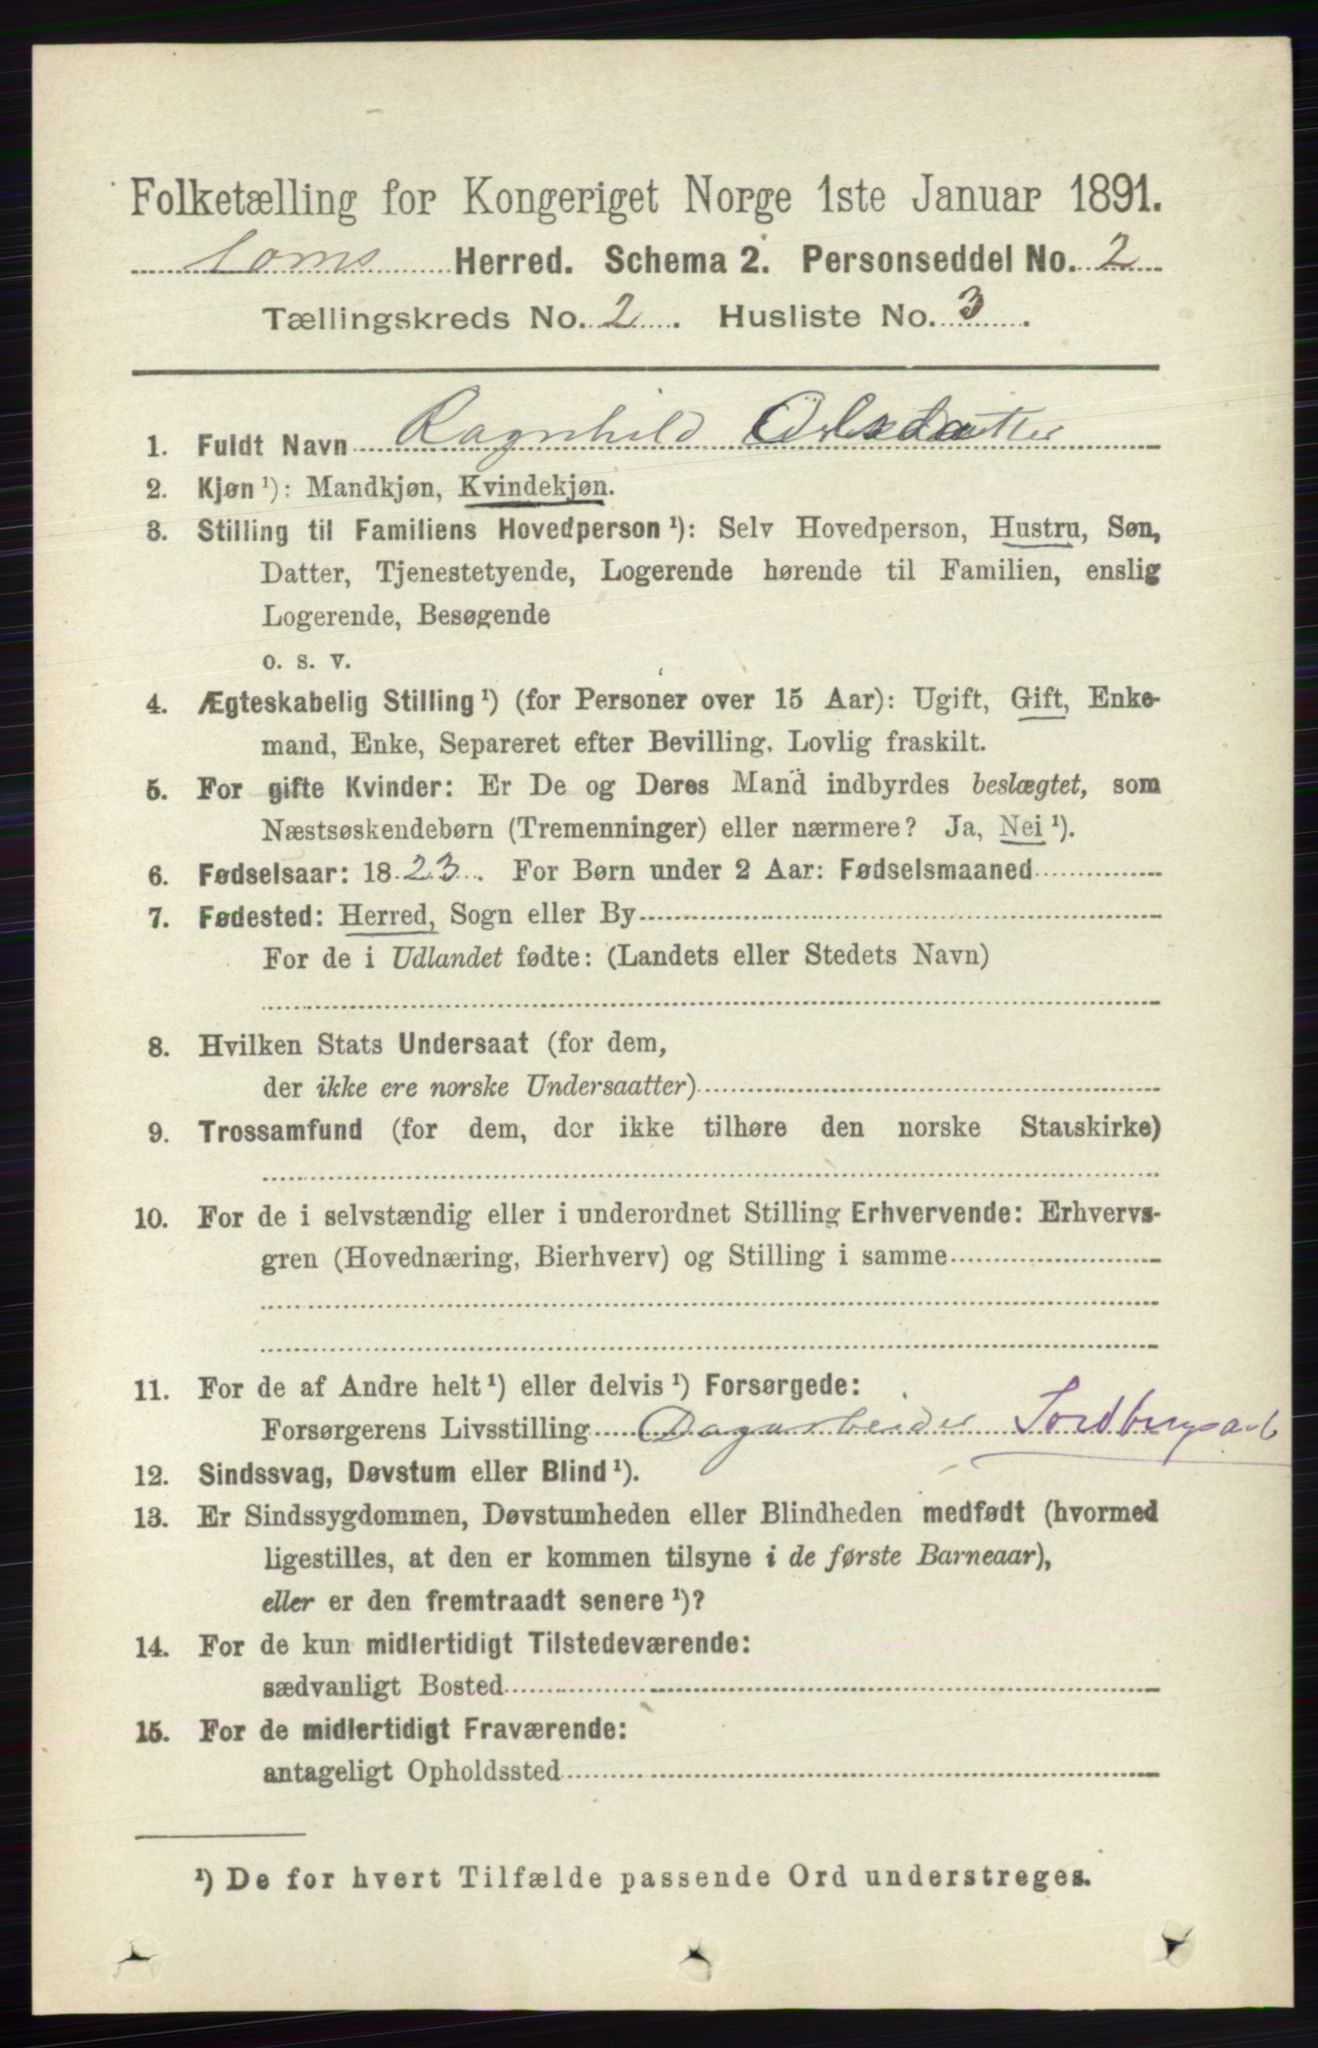 Folketælling for Kongeriget Norge 1ste Januar 1891.
Loms Herred. Schema 2. Personseddel No. 2
Tællingskreds No. 2. Husliste No. 3.
1. Fuldt Navn Ragnhild Olsdatter
2. Kjøn ¹): Mandkjøn, Kvindekjøn.
3. Stilling til Familiens Hovedperson ¹): Selv Hovedperson, Hustru, Søn,
Datter, Tjenestetyende, Logerende hørende til Familien, enslig
Logerende, Besøgende
o. s. v.
4. Ægteskabelig Stilling ¹) (for Personer over 15 Aar): Ugift, Gift, Enke-
mand, Enke, Separeret efter Bevilling, Lovlig fraskilt.
5. For gifte Kvinder: Er De og Deres Mand indbyrdes beslægtet, som
Næstsøskendebørn (Tremenninger) eller nærmere? Ja, Nei ¹).
6. Fødselsaar: 1823. For Børn under 2 Aar: Fødselsmaaned
7. Fødested: Herred, Sogn eller By
For de i Udlandet fødte: (Landets eller Stedets Navn)
8. Hvilken Stats Undersaat (for dem,
der ikke ere norske Undersaatter)
9. Trossamfund (for dem, der ikke tilhøre den norske Statskirke)
10. For de i selvstændig eller i underordnet Stilling Erhvervende: Erhvervs-
gren (Hovednæring, Bierhverv) og Stilling i samme
11. For de af Andre helt ¹) eller delvis ¹) Forsørgede:
Forsørgerens Livsstilling Dagarbeider Jordbrugsarb
12. Sindssvag, Døvstum eller Blind ¹).
13. Er Sindssygdommen, Døvstumheden eller Blindheden medfødt (hvormed
ligestilles, at den er kommen tilsyne i de første Barneaar),
eller er den fremtraadt senere ¹)?
14. For de kun midlertidigt Tilstedeværende:
sædvanligt Bosted
15. For de midlertidigt Fraværende:
antageligt Opholdssted
¹) De for hvert Tilfælde passende Ord understreges.